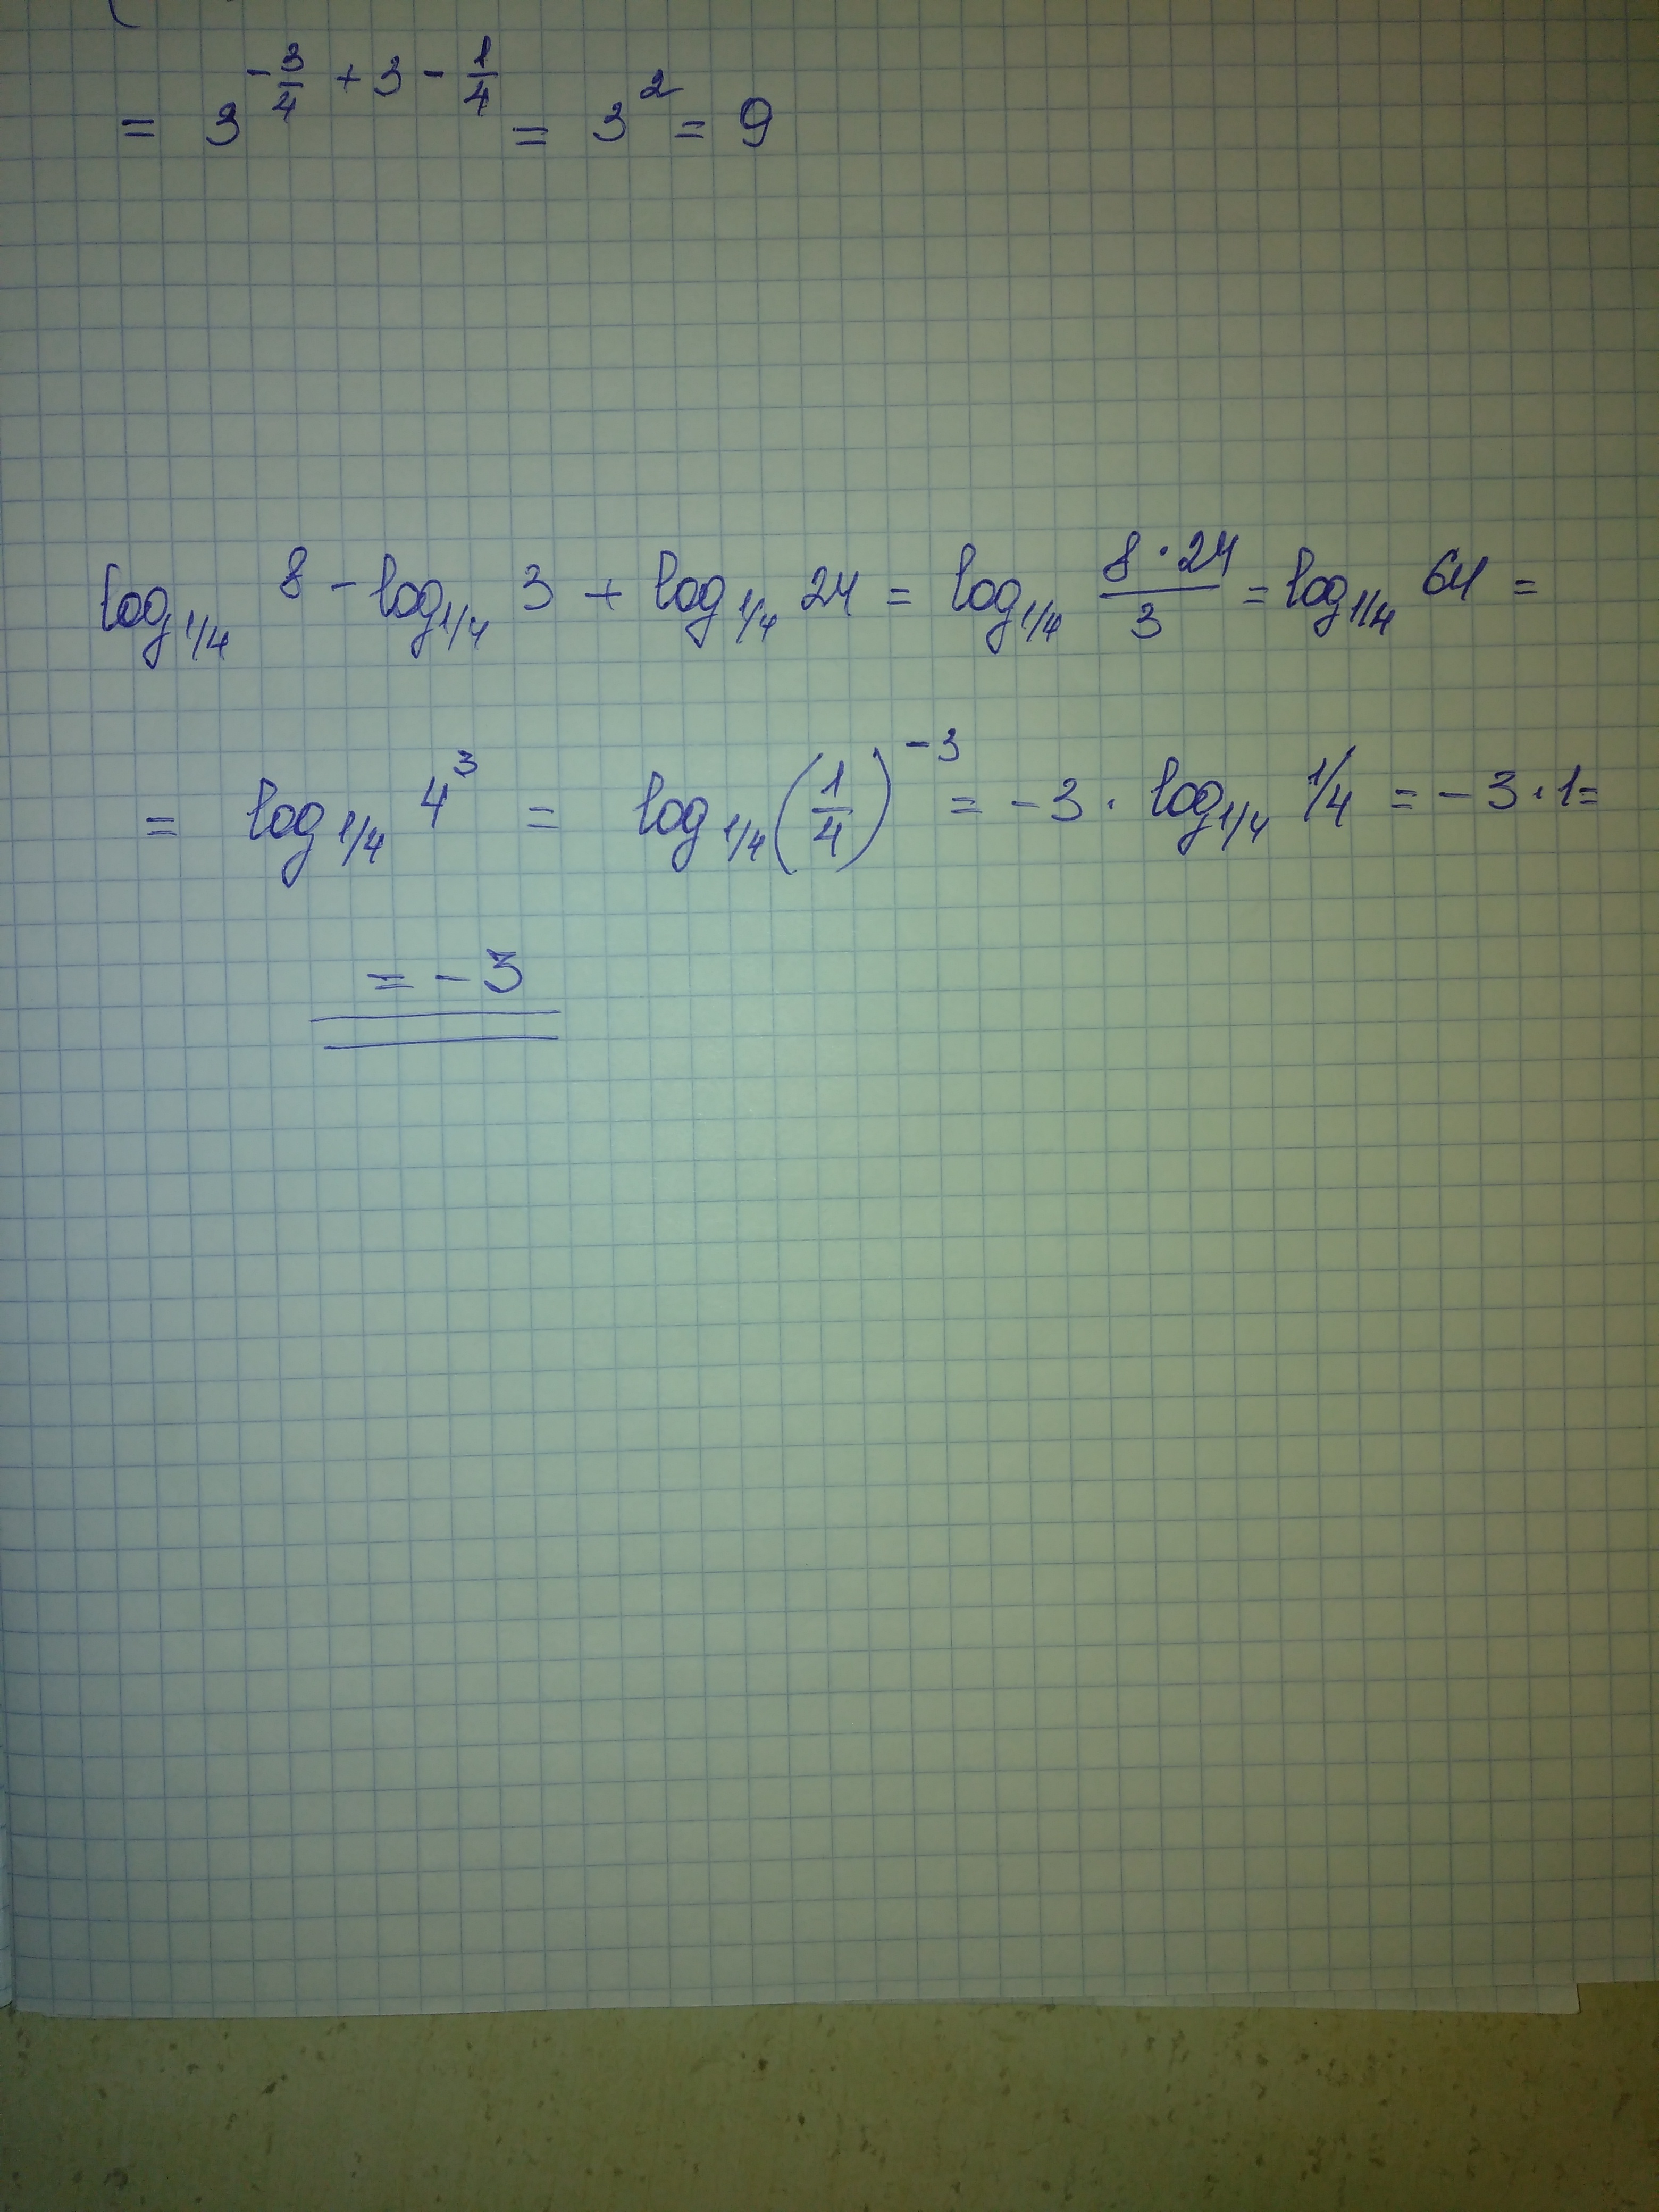 = 3^{-3/4 + 3 - 1/4} = 3^2 = 9
log_{1/4} 8 - log_{1/4} 3 + log_{1/4} 24 = log_{1/4} \frac{8 · 24}{3} = log_{1/4} 64 =
= log_{1/4} 4^3 = log_{1/4} (\frac{1}{4})^{-3} = -3 · log_{1/4} 1/4 = -3 · 1 =
= -3